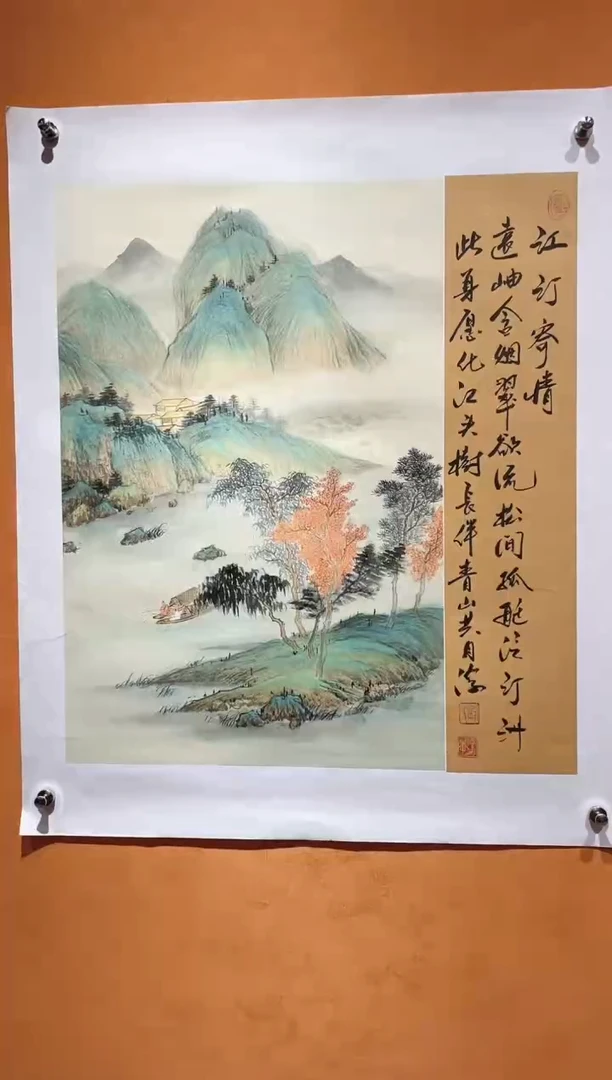 江汀寄情
遠岫含烟翠欲流松间孤艇泛汀洲
此身愿化江头樹長伴青山共月浮